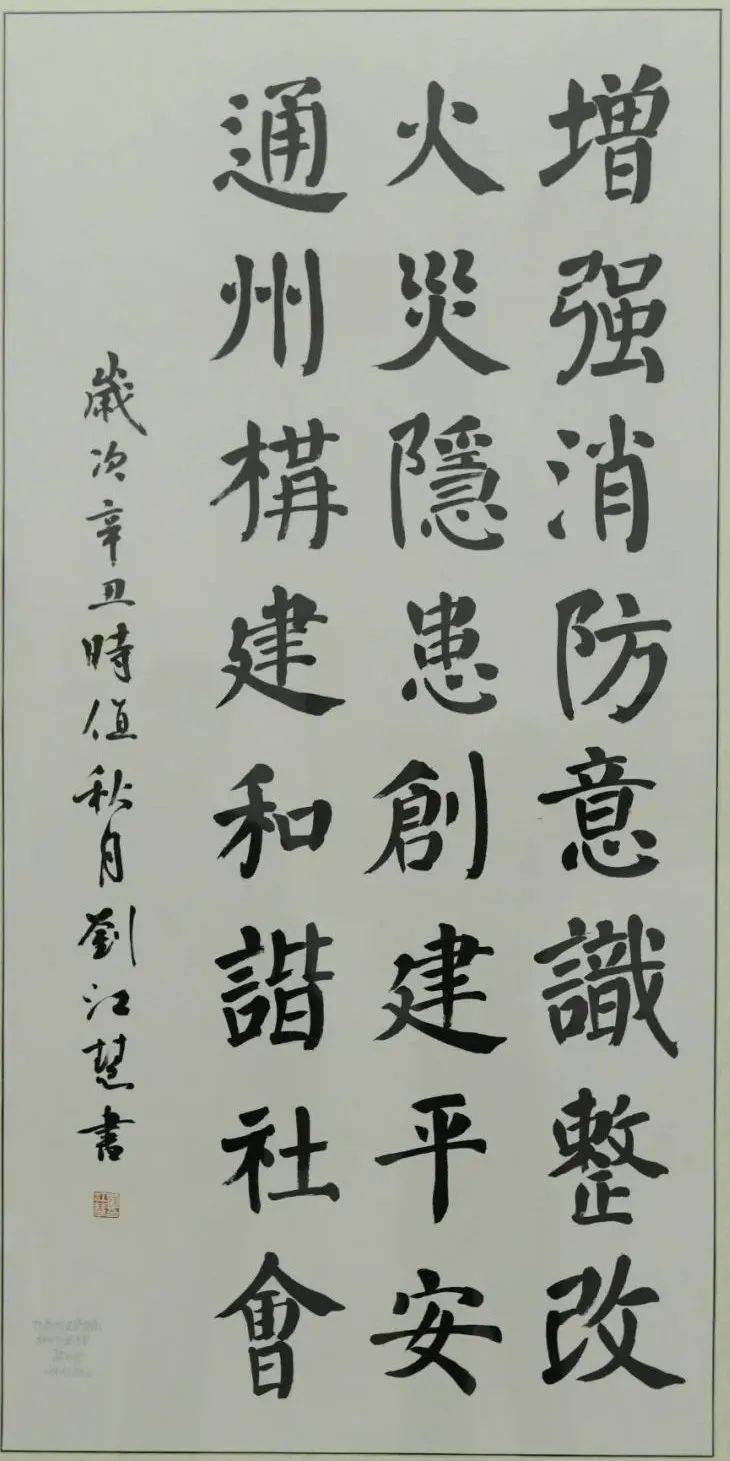 增强消防意識整改
火災隱患創建平安
通州構建和諧社會
歲次辛丑時值秋月劉江慧書